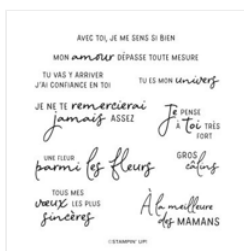 AVEC TOI, JE ME SENS SI BIEN
MON amour DÉPASSE TOUTE MESURE
TU VAS Y ARRIVER
J'AI CONFIANCE EN TOI
TU ES MON univers
JE NE TE remercierai
jamais ASSEZ
Je PENSE
À toi TRÈS
FORT
UNE FLEUR
parmi les fleurs
GROS
câlins
TOUS MES
vœux LES PLUS
sincères
À la meilleure
des MAMANS
©STAMPIN' UP!